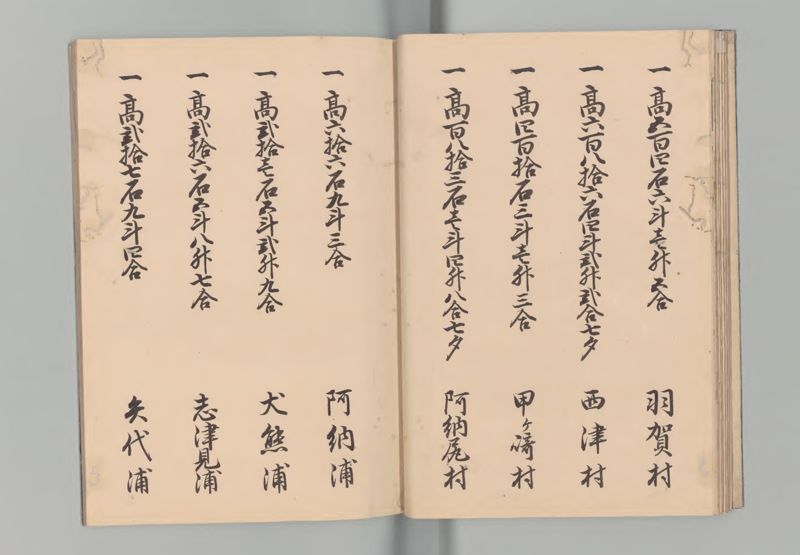 一高五百四石六斗壱升五合 羽賀村
一高六百八拾六石四斗弐升弐合七夕 西津村
一高四百拾石三斗壱升三合 甲ヶ崎村
一高百八拾三石壱斗四升八合七夕 阿納尻村
一高六拾六石九斗三合 阿納浦
一高弐拾壱石五斗弐升九合 犬熊浦
一高弐拾六石五斗八升七合 志津見浦
一高弐拾七石九斗四合 矢代浦